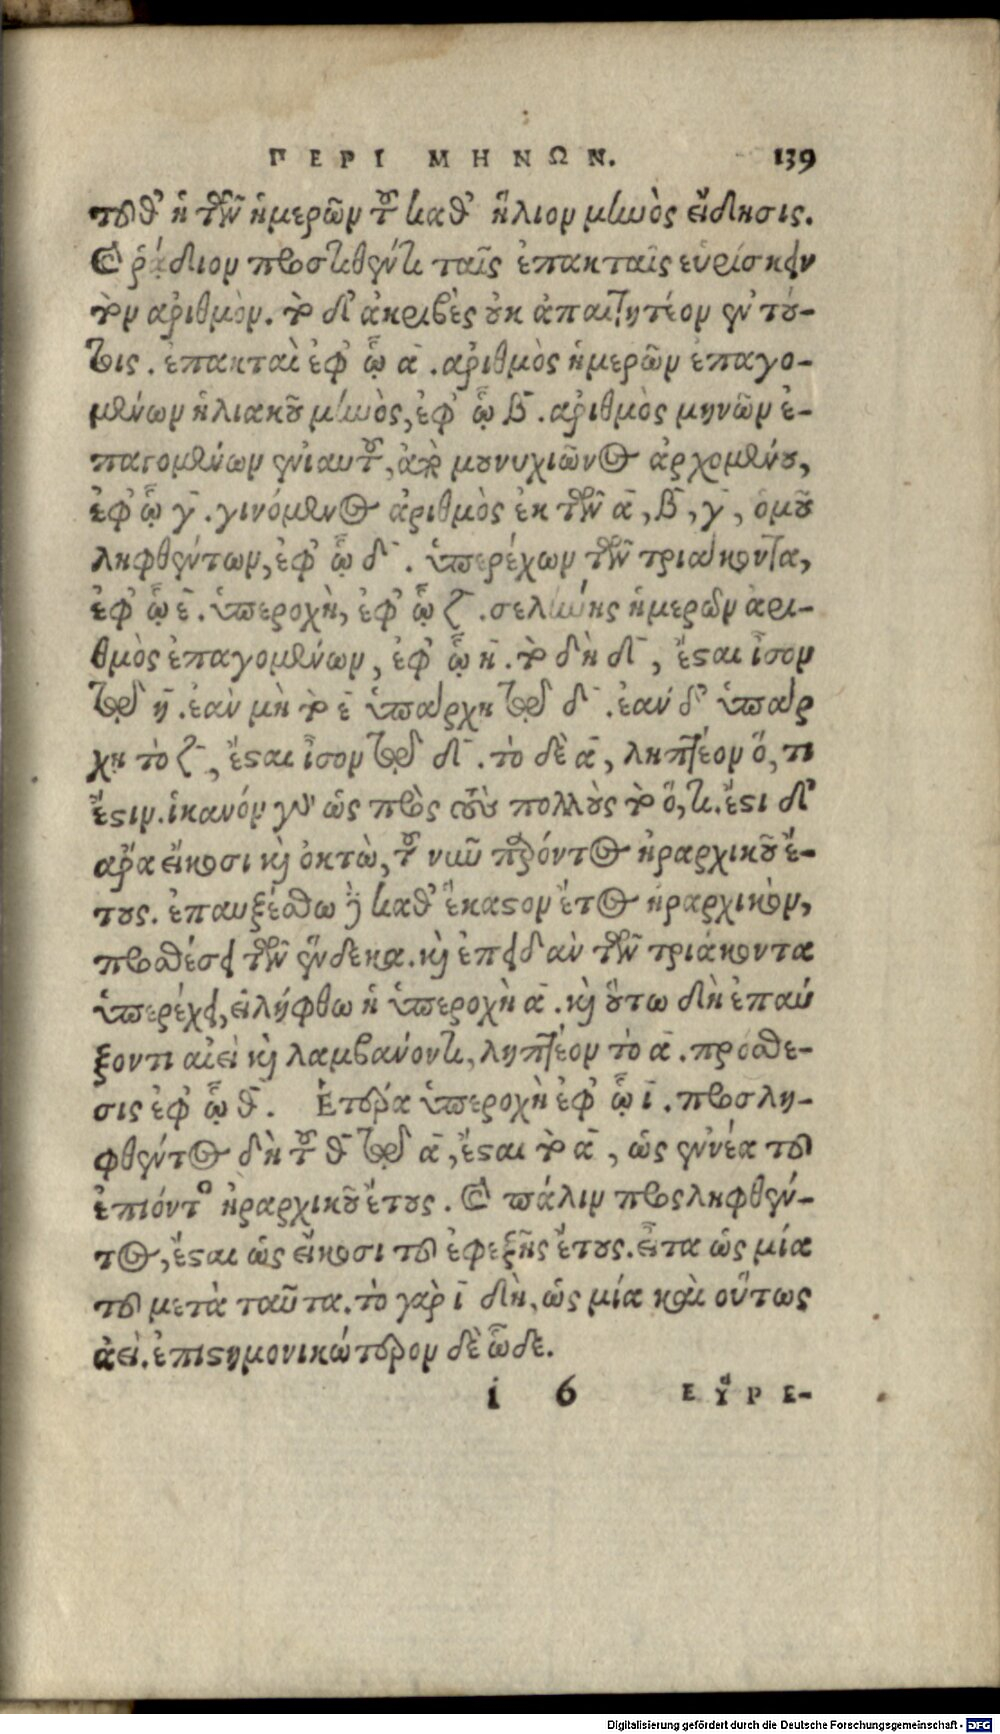 ΠΕΡΙ ΜΗΝΩΝ. 139
τοῦθ' ἡ τῶν ἡμερῶν τοῦ καθ' ἥλιον μηνὸς εἴδησις.
καὶ ῥᾴδιον προστιθέντι ταῖς ἐπακταῖς εὑρίσκειν
τὸν ἀριθμὸν. τὸ δ' ἀκριβὲς οὐκ ἀπαιτητέον ἐν τού-
τοις. ἐπακταὶ ἐφ' ᾧ ᾱ. ἀριθμὸς ἡμερῶν ἐπαγο-
μένων ἡλιακοῦ μηνὸς, ἐφ' ᾧ β̄. ἀριθμὸς μηνῶν ἐ-
παγομένων ἐνιαυτοῦ, ἀπὸ μουνυχιῶνος ἀρχομένου,
ἐφ' ᾧ γ̄. γινόμενος ἀριθμὸς ἐκ τῶν ᾱ, β̄, γ̄, ὁμοῦ
ληφθέντων, ἐφ' ᾧ δ̄. ὑπερέχων τῶν τριάκοντα,
ἐφ' ᾧ ε̄. ὑπεροχὴ, ἐφ' ᾧ ζ̄. σελήνης ἡμερῶν ἀρι-
θμὸς ἐπαγομένων, ἐφ' ᾧ η̄. τὸ δὴ δ̄, ἔσται ἶσον
τῷ η̄. ἐὰν μὴ τὸ ε̄ ὑπάρχῃ τῷ δ̄. ἐὰν δ' ὑπάρ
χῃ τὸ ζ̄, ἔσται ἶσον τῷ δ̄. τὸ δὲ ᾱ, ληπτέον ὅ, τι
ἔστιν. ἱκανόν γ' ὡς πρὸς τοὺς πολλοὺς τὸ ὅ, τι. ἔστι δ'
ἄρα εἴκοσι καὶ ὀκτὼ, τοῦ νῦν παρόντος ἡραρχικοῦ ἔ-
τους. ἐπαυξέσθω δὲ καθ' ἕκαστον ἔτος ἡραρχικὸν,
προσθέσει τῶν ἕνδεκα. καὶ ἐπειδὰν τῶν τριάκοντα
ὑπερέχει, εἰλήφθω ἡ ὑπεροχὴ ᾱ. καὶ οὕτω δὴ ἐπαύ
ξοντι αἰεὶ καὶ λαμβάνοντι, ληπτέον τὸ ᾱ. πρόσθε-
σις ἐφ' ᾧ θ̄. Ἑτέρα ὑπεροχὴ ἐφ' ᾧ ῑ. προσλη-
φθέντος δὴ τοῦ θ̄ τῷ ᾱ, ἔσται τὸ ᾱ, ὡς ἐννέα τοῦ
ἐπιόντος ἡραρχικοῦ ἔτους. καὶ πάλιν προςληφθέν-
τος, ἔσται ὡς εἴκοσι τοῦ ἐφεξῆς ἔτους. εἶτα ὡς μία
τοῦ μετὰ ταῦτα. τὸ γὰρ ῑ δὴ, ὡς μία καὶ οὕτως
ἀεί. ἐπιστημονικώτερον δὲ ὧδε.
i 6 ΕὙΡΕ-
Digitalisierung gefördert durch die Deutsche Forschungsgemeinschaft - DFG